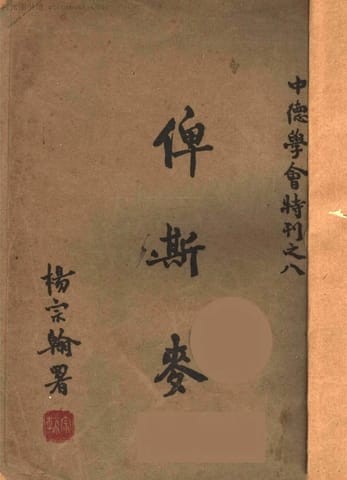 中德學會特刊之八
俾斯麥
楊宗翰署